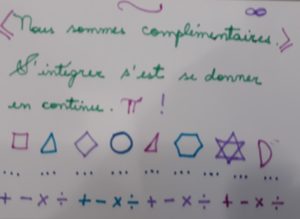 ∞
《Nous sommes complimentaires.》
S'intégrer s'est se donner
en continue. π !
... ... ... ... ... ... ... ...
+ - × ÷ + - × ÷ + - × ÷ + - × ÷